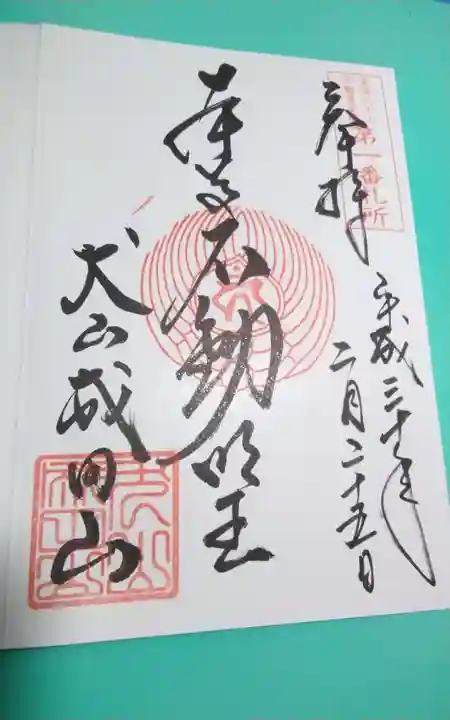 第一番札所
奉拝
平成三十年
二月二十五日
本尊不動明王
犬山成田山